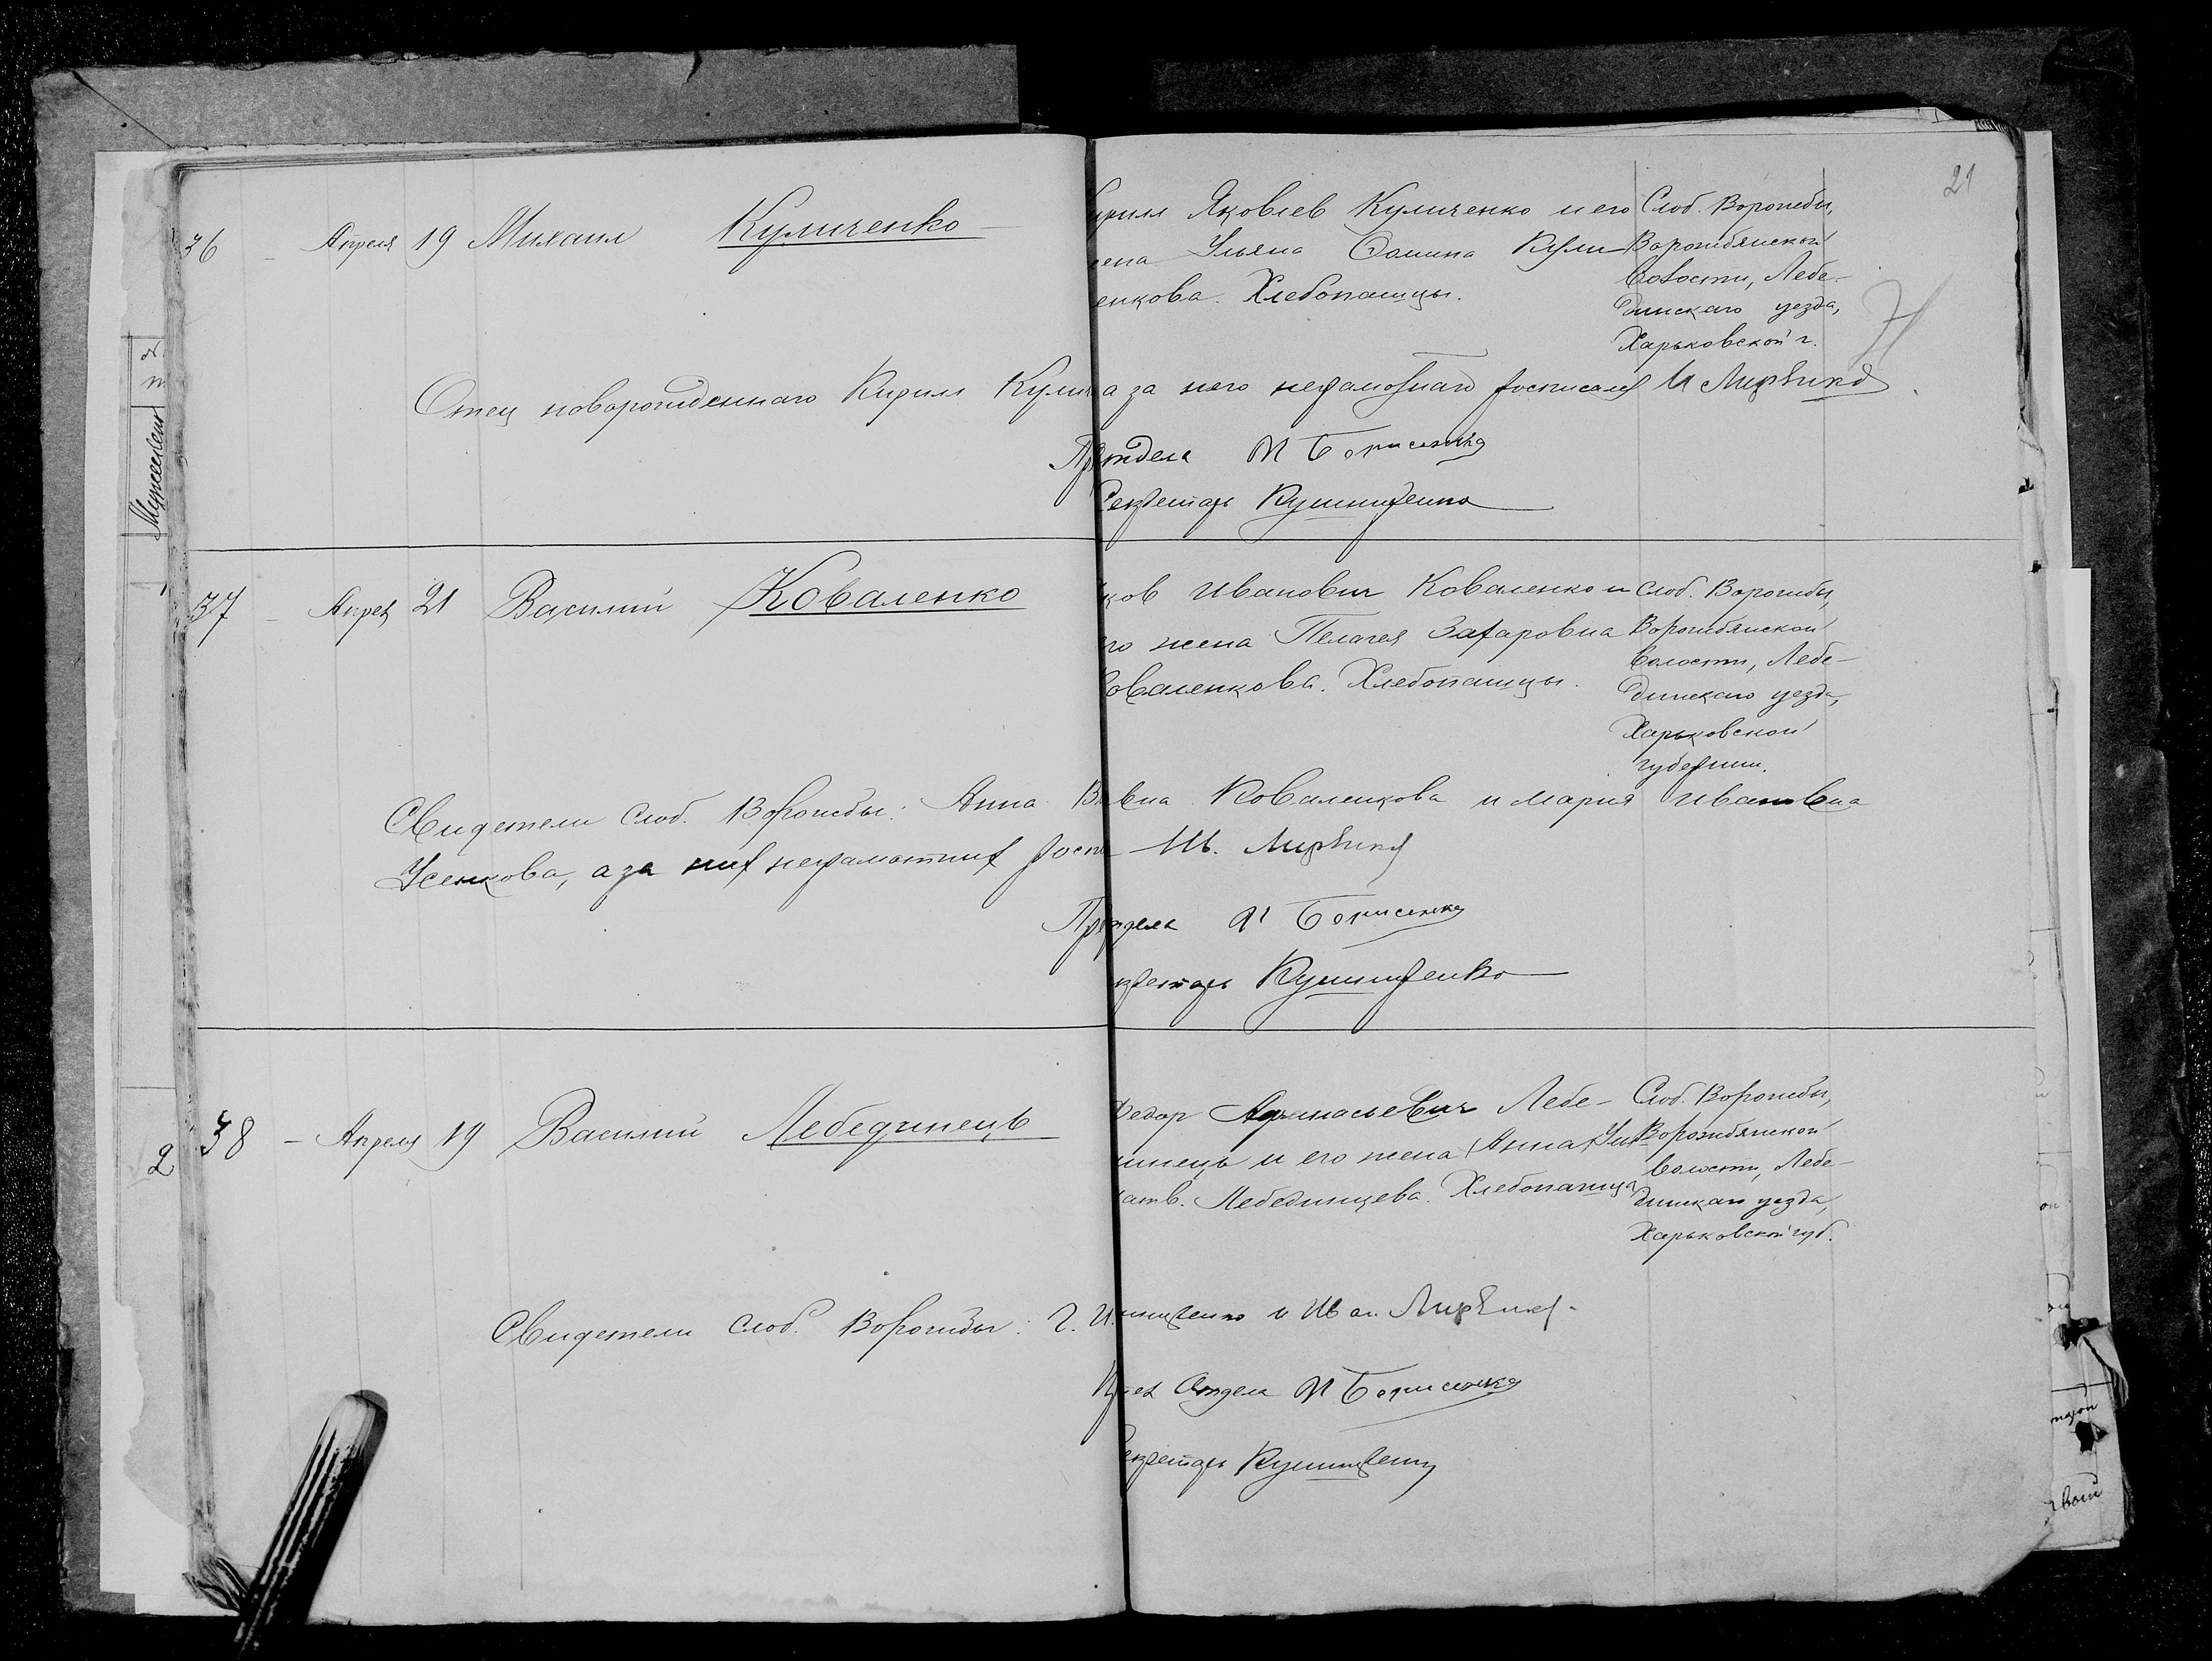 21
36 – Апреля 19 Михаил Куличенко
ирилл Яковлев Куличенко и его
ена Ульяна Фомина Кули
енкова. Хлебопашцы.
Слоб. Ворожбы,
Ворожбянской
волости, Лебе-
динскаго уезда,
Харьковской г.
Отец новорожденнаго Кирилл Кулич а за него неграмотнаго росписался И
Пр тдела И Борисенко
Секретарь Кушниренко
37 – Апрел 21 Василий Коваленко
ков Иванович Коваленко и
го жена Пелагея Захаровна
оваленкова. Хлебопашцы.
Слоб. Ворожбы,
Ворожбянской
волости, Лебе-
динскаго уезда,
Харьковской
губернии.
Свидетели слоб. Ворожбы: Анна вна Коваленкова и Мария Ивановна
Усенкова, а за них неграмотних роспи Ив.
Пр тдела И Борисенко
кретарь Кушниренко
38 – Апреля 19 Василий Лебединець
Федор Афанасьевич Лебе-
инець и его жена Анна
атв. Лебединцева. Хлебопашцы
Слоб. Ворожбы,
Ворожбянской
волости, Лебе-
динскаго уезда,
Харьковской губ.
Свидетели слоб. Ворожбы: Г. и Иван
Отдела И Борисенко
екретарь Кушниренко
2